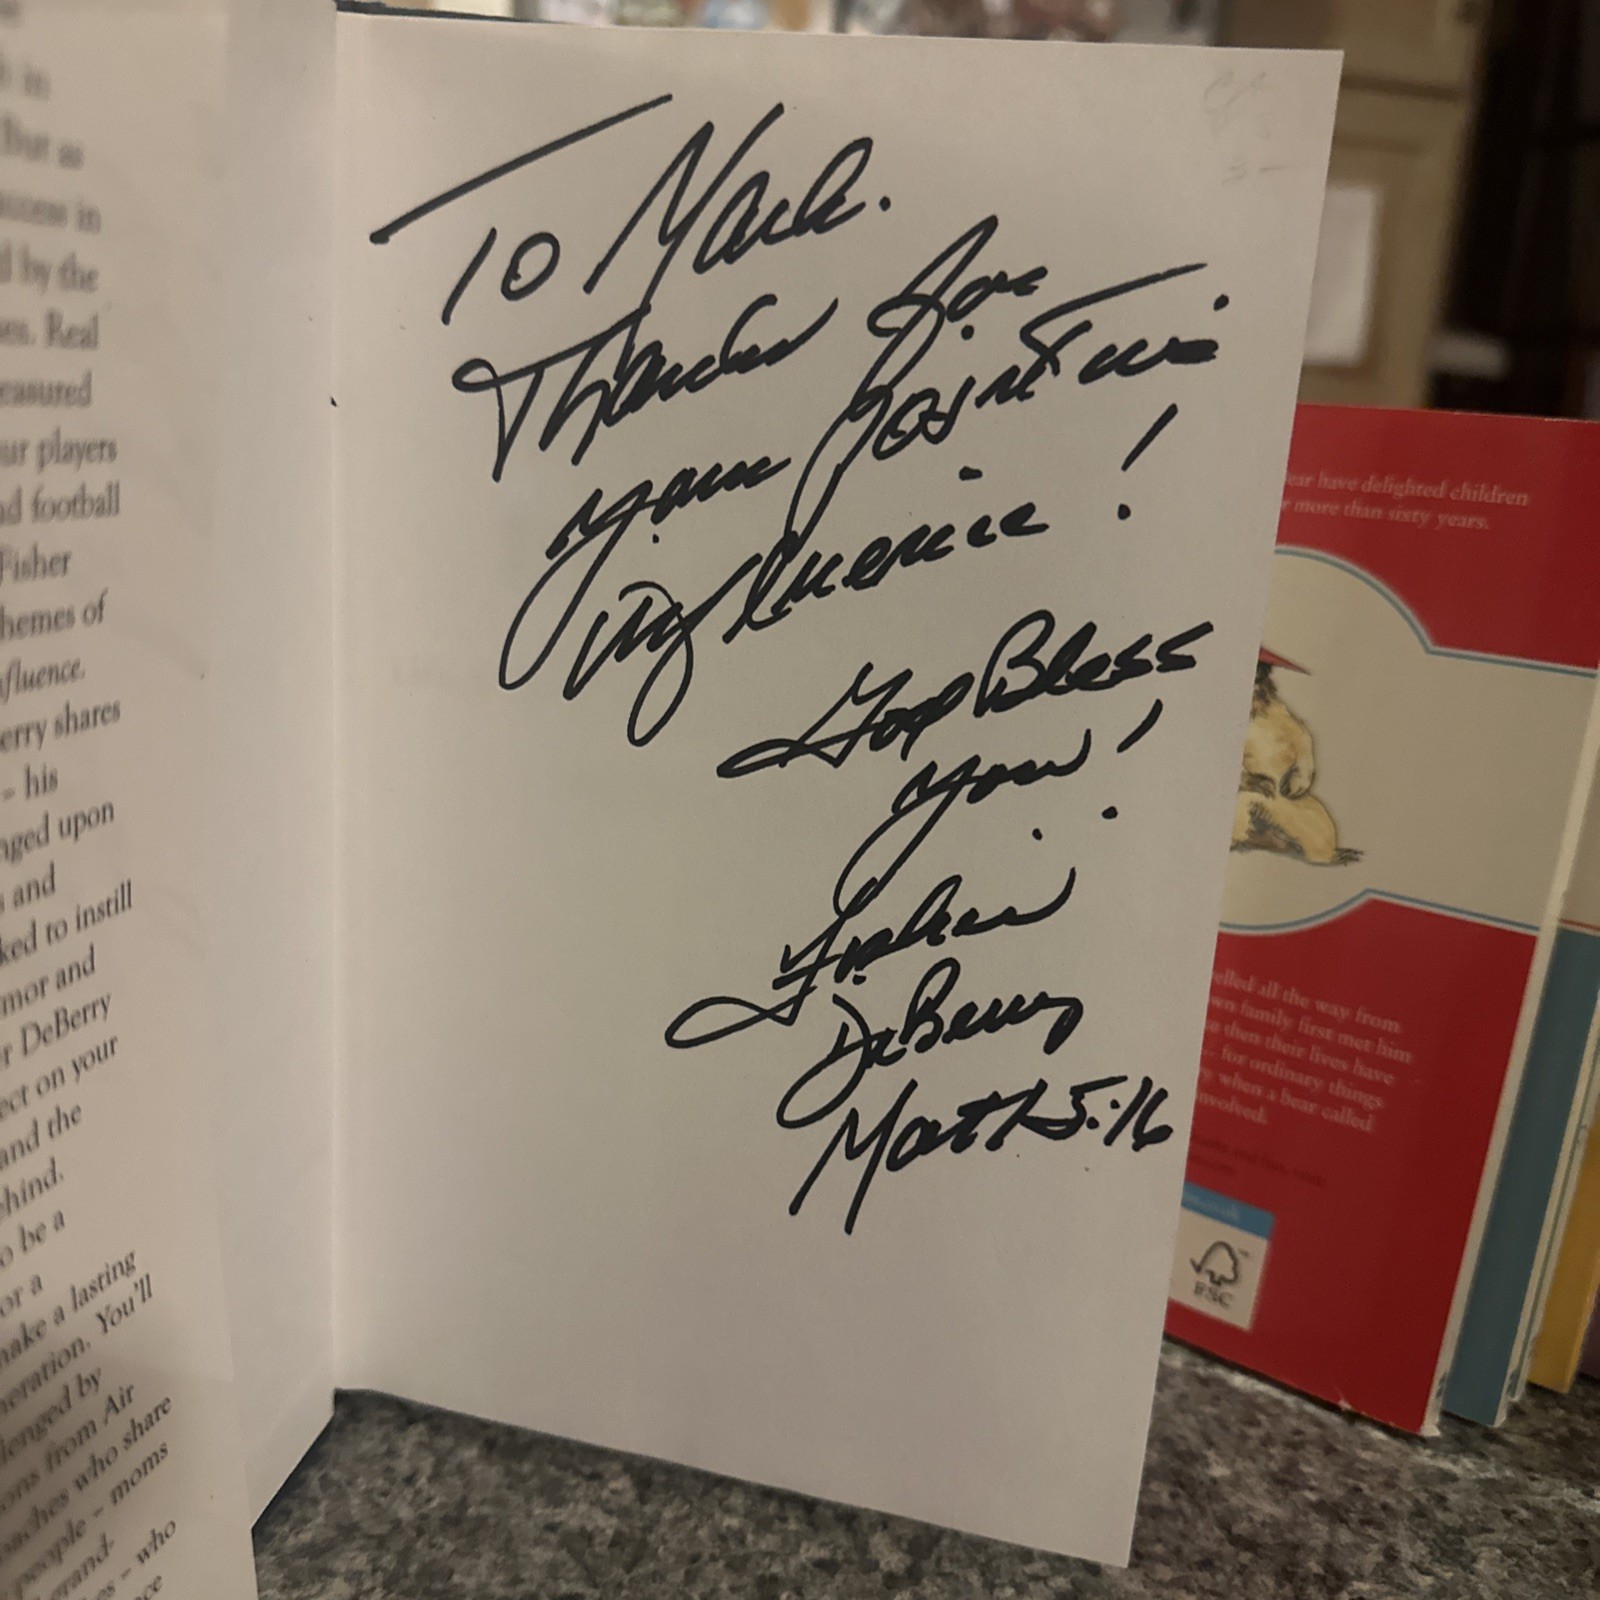 in
But as
success in
by the
Real
measured
players
football
Fisher
themes of
fluence.
erry shares
– his
nged upon
and
ked to instill
mor and
r DeBerry
ect on your
and the
hind.
o be a
or a
make a lasting
neration. You'll
lenged by
ons from Air
aches who share
people – moms
grand-
es – who
To Mark.
Thanks for
your positive
influence!
God Bless
you!
Fisher
DeBerry
Matt 5:16
ear have delighted children
r more than sixty years.
elled all the way from
wn family first met him
o then their lives have
– for ordinary things
y when a bear called
nvolved.
FSC